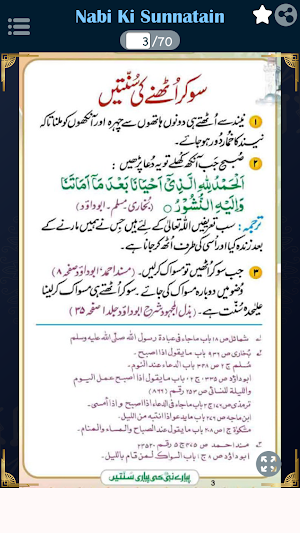 Nabi Ki Sunnatain
3 /70
سو کر اُٹھنے کی سُنّتیں
۱ نیند سے اُٹھتے ہی دونوں ہاتھوں سے چہرہ اور آنکھوں کو ملنا تاکہ
نیند کا خمار دُور ہو جائے۔
۲ صُبح جب آنکھ کھُلے تو یہ دُعا پڑھیں:
اَلْحَمْدُ لِلّٰهِ الَّذِيْٓ اَحْيَانَا بَعْدَ مَآ اَمَاتَنَا
وَاِلَيْهِ النُّشُوْرُ (بخاری، مسلم۔ ابوداؤد)
ترجمہ: سب تعریفیں اللہ تعالیٰ کے لئے ہیں جس نے ہمیں مارنے کے
بعد زندہ کیا اور اُسی کی طرف اُٹھ کر جانا ہے۔
۳ جب سو کر اُٹھیں تو مسواک کرلیں۔ (مسند احمد، ابوداؤد صفحہ ۸)
وُضو میں دوبارہ مسواک کی جائے۔ سو کر اُٹھتے ہی مسواک کر لینا
علیٰحدہ سُنّت ہے۔ (بذل المجہود شرح ابوداؤد جلد ۱ صفحہ ۳۵)
شمائل ص ۱۸ باب ماجاء فی عبادة رسول اللہ صلی اللہ علیہ وسلم
بخاری ص ۹۳۶ باب ما یقول اذا اصبح۔
مسلم ج ۲ ص ۳۴۸ باب الدعاء عند النوم۔
ابوداؤد ص ۳۳۵ ج ۲ باب ما یقول اذا اصبح عمل الیوم
واللیلة للنسائی ص ۲۵۳ رقم (۸۶۲)
ترمذی ص ۱۷۶ ج ۲ باب ماجاء فی الدعاء اذا اصبح و اذا امسی۔
ابن ماجہ ص باب ما یدعو اذا انتبہ من اللیل۔
مشکوٰة ج ۱ ص ۲۰۸ باب ما یقول عند الصباح والمساء والمنام۔
مسند احمد ص ج ۵ رقم
ابوداؤد ص ۸ ج ۱ باب السواک لمن قام باللیل۔
پیارے نبی کی پیاری سنتیں
3